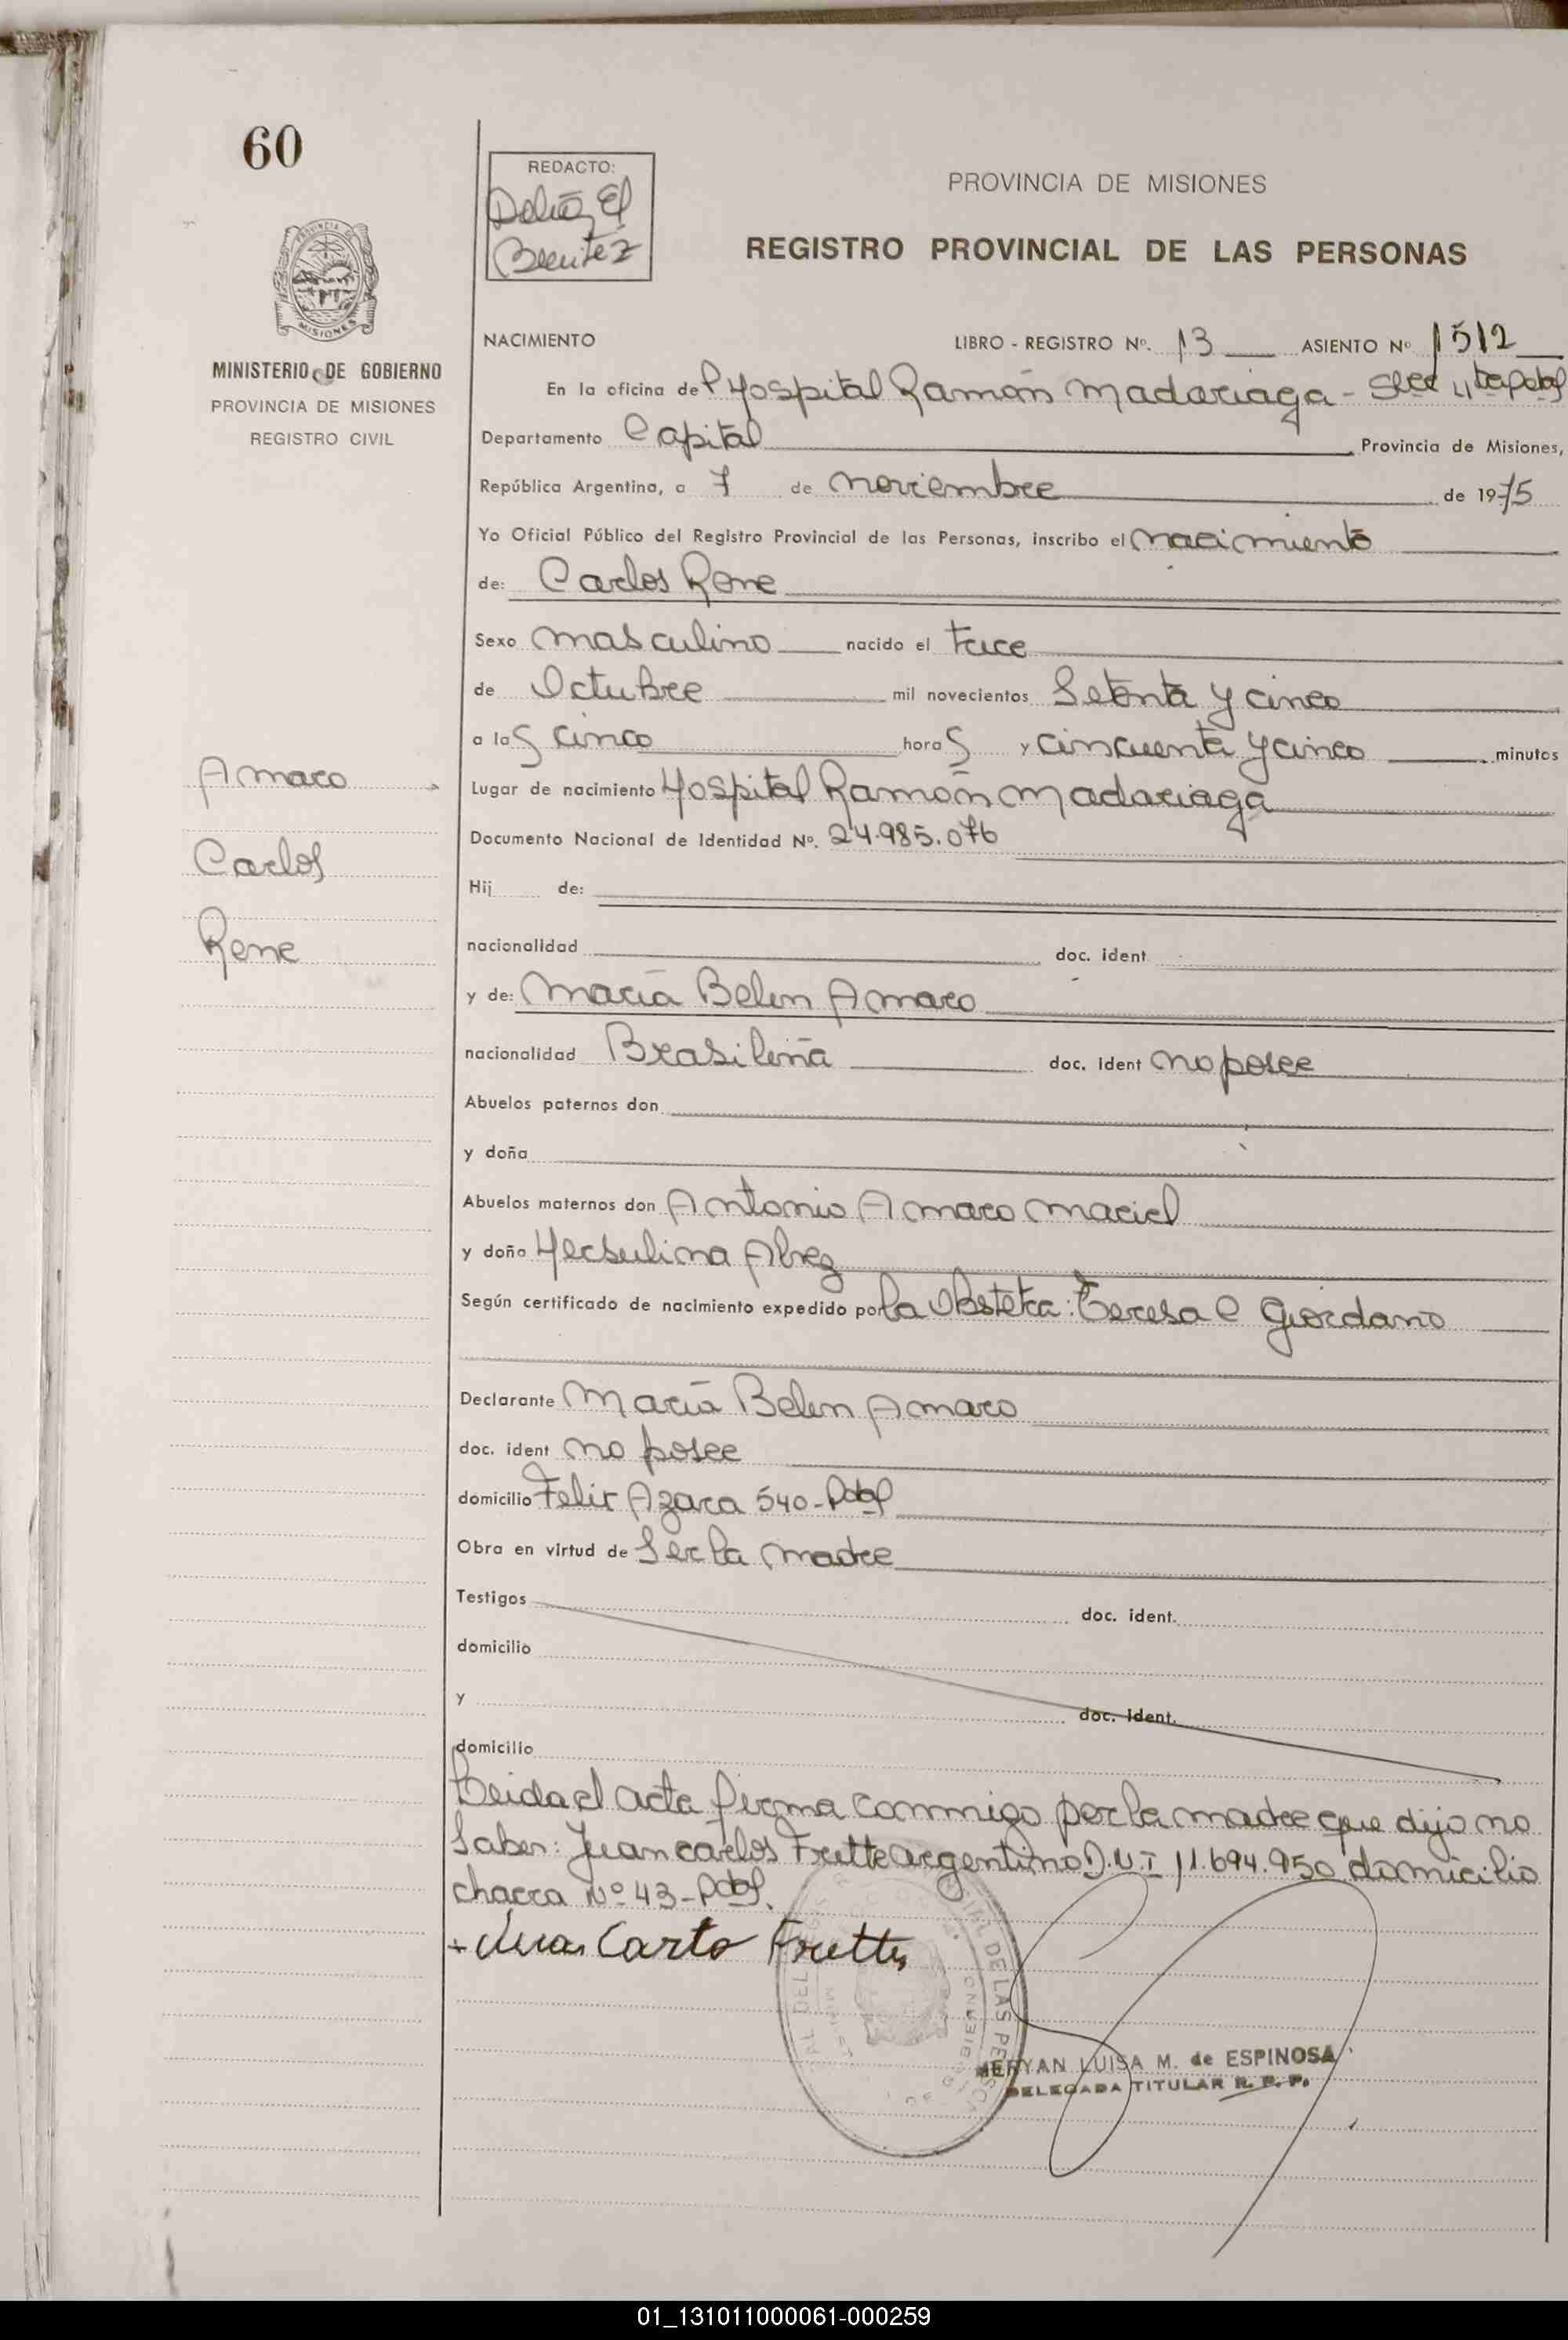 60
REDACTO:
Delia El
Benitez
PROVINCIA DE MISIONES
REGISTRO PROVINCIAL DE LAS PERSONAS
MINISTERIO DE GOBIERNO
PROVINCIA DE MISIONES
REGISTRO CIVIL
NACIMIENTO LIBRO - REGISTRO Nº. 13 ASIENTO Nº 1512
En la oficina del Hospital Ramón Madariaga -
Departamento Capital Provincia de Misiones,
República Argentina, a 7 de noviembre de 1975
Yo Oficial Público del Registro Provincial de las Personas, inscribo el nacimiento
de: Carlos Rene
Sexo masculino nacido el trece
de Octubre mil novecientos Setenta y cinco
a las cinco horas y cincuenta y cinco minutos
Amaro
Carlos
Rene
Lugar de nacimiento Hospital Ramón Madariaga
Documento Nacional de Identidad Nº. 24.985.076
Hij de:
nacionalidad doc. ident
y de: Maria Belen Amaro
nacionalidad Brasileña doc. ident no posee
Abuelos paternos don
y doña
Abuelos maternos don Antonio Amaro Maciel
y doña Hersulina Alvez
Según certificado de nacimiento expedido por la Obstetra: Teresa C Giordano
Declarante Maria Belen Amaro
doc. ident no posee
domicilio Felix Azara 540 - Pdas
Obra en virtud de Ser la madre
Testigos doc. ident.
domicilio
y doc. ident.
domicilio
Leida el acta firma conmigo por la madre que dijo no
saber: Juan carlos Frette argentino D.N.I 11.694.950 domicilio
chacra Nº 43 - Pdas.
Juan Carlo Frette
MERYAN LUISA M. de ESPINOSA
DELEGADA TITULAR R. P. P.
01_131011000061-000259